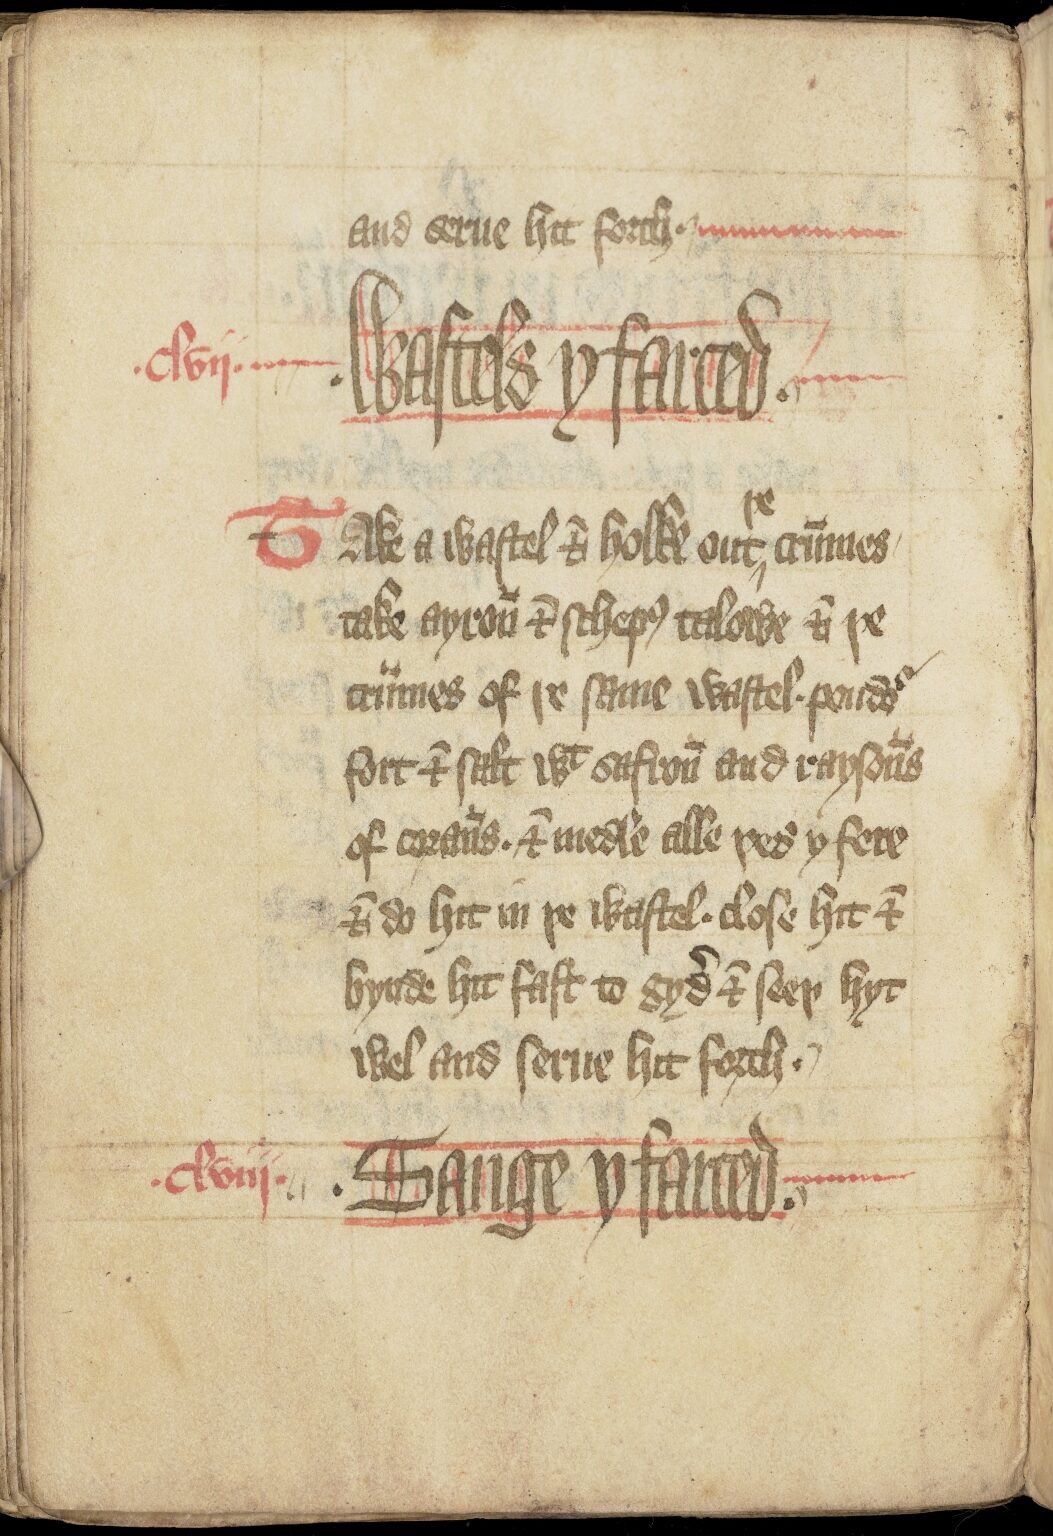 and serue hit forth.
.clvij. .Wastels y farced.
Take a wastel & holke out þe crūmes
take ayroū & schepꝭ talowe & þe
crūmes of þe same wastel. poudᵒ
fort & salt wᵗ safroū and raysoūs
of coraūs. & medle alle þes y fere
& do hit in þe wastel. close hit &
bynde hit fast to gydʾ & seeþ hyt
wel and serue hit forth.
.clviij. .Sauge y farced.